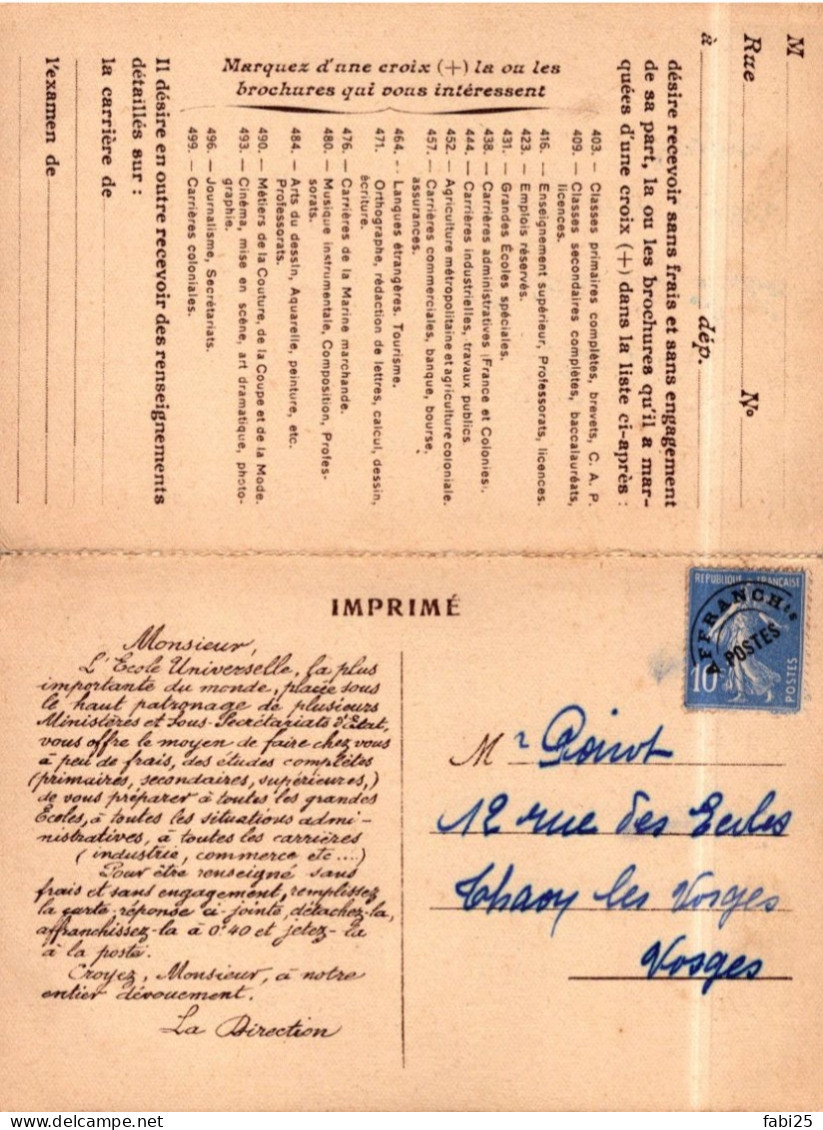 M
Rue N°
à dép.
désire recevoir sans frais et sans engagement
de sa part, la ou les brochures qu'il a mar-
quées d'une croix (+) dans la liste ci-après :
Marquez d'une croix (+) la ou les
brochures qui vous intéressent
403. — Classes primaires complètes, brevets, C. A. P.
409. — Classes secondaires complètes, baccalauréats,
licences.
416. — Enseignement supérieur, Professorats, licences.
423. — Emplois réservés.
431. — Grandes Écoles spéciales.
438. — Carrières administratives (France et Colonies).
444. — Carrières industrielles, travaux publics
452. — Agriculture métropolitaine et agriculture coloniale.
457. — Carrières commerciales, banque, bourse,
assurances.
464. - Langues étrangères. Tourisme.
471. Orthographe, rédaction de lettres, calcul, dessin,
écriture.
476. — Carrières de la Marine marchande.
480. — Musique instrumentale, Composition, Profes-
sorats.
484. — Arts du dessin, Aquarelle, peinture, etc.
Professorats.
490. — Métiers de la Couture, de la Coupe et de la Mode.
493. — Cinéma, mise en scène, art dramatique, photo-
graphie.
496. — Journalisme, Secrétariats.
499. — Carrières coloniales.
Il désire en outre recevoir des renseignements
détaillés sur :
la carrière de
l'examen de
IMPRIMÉ
REPUBLIQUE FRANÇAISE
AFFRANCHts
POSTES
10
POSTES
Monsieur,
L'Ecole Universelle, la plus
importante du monde, placée sous
le haut patronage de plusieurs
Ministères et Sous-Secrétariats d'Etat,
vous offre le moyen de faire chez vous
à peu de frais, des études complètes
(primaires, secondaires, supérieures,)
de vous préparer à toutes les grandes
Ecoles, à toutes les situations admi-
nistratives, à toutes les carrières
(industrie, commerce etc....)
Pour être renseigné sans
frais et sans engagement, remplissez
la carte-réponse ci-jointe, détachez-la,
affranchissez-la à 0f40 et jetez-la
à la poste.
Croyez, Monsieur, à notre
entier dévouement.
La Direction
Mr Poirot
12 rue des Ecoles
Thaon les Vosges
Vosges
fabi25